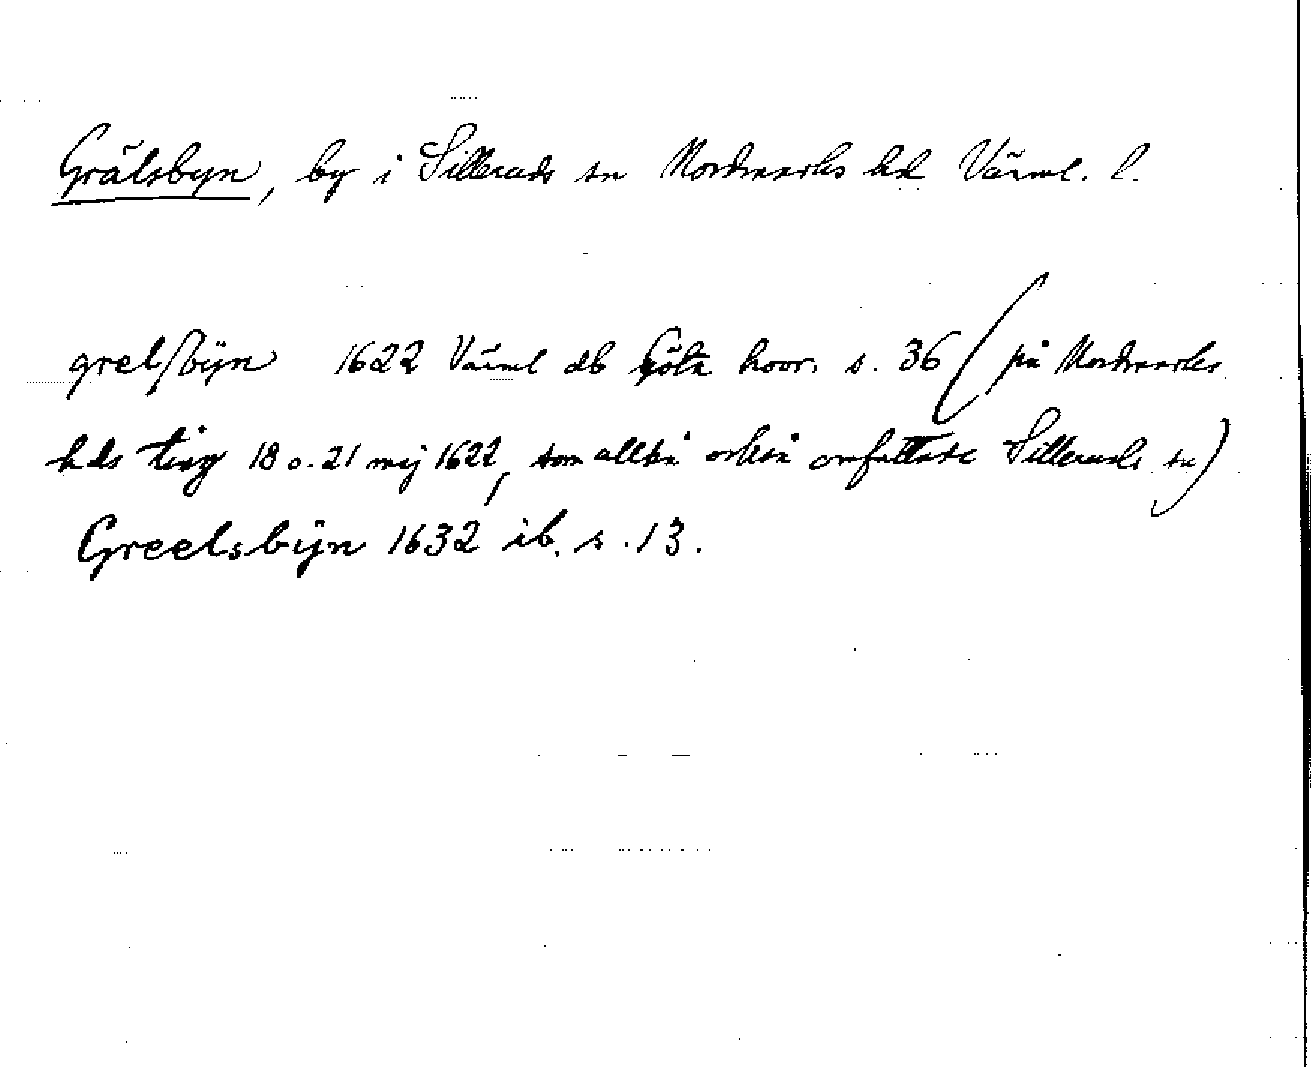 Grälsbyn, by i Silleruds sn Nordmarks hd Värml. l.
grelsbÿn 1622 Värml db Göta hovr. s. 36 (på Nordmarks
hds ting 18 o. 21 maj 1622, som alltså också omfattade Silleruds sn)
Greelsbÿn 1632 ib. s. 13.